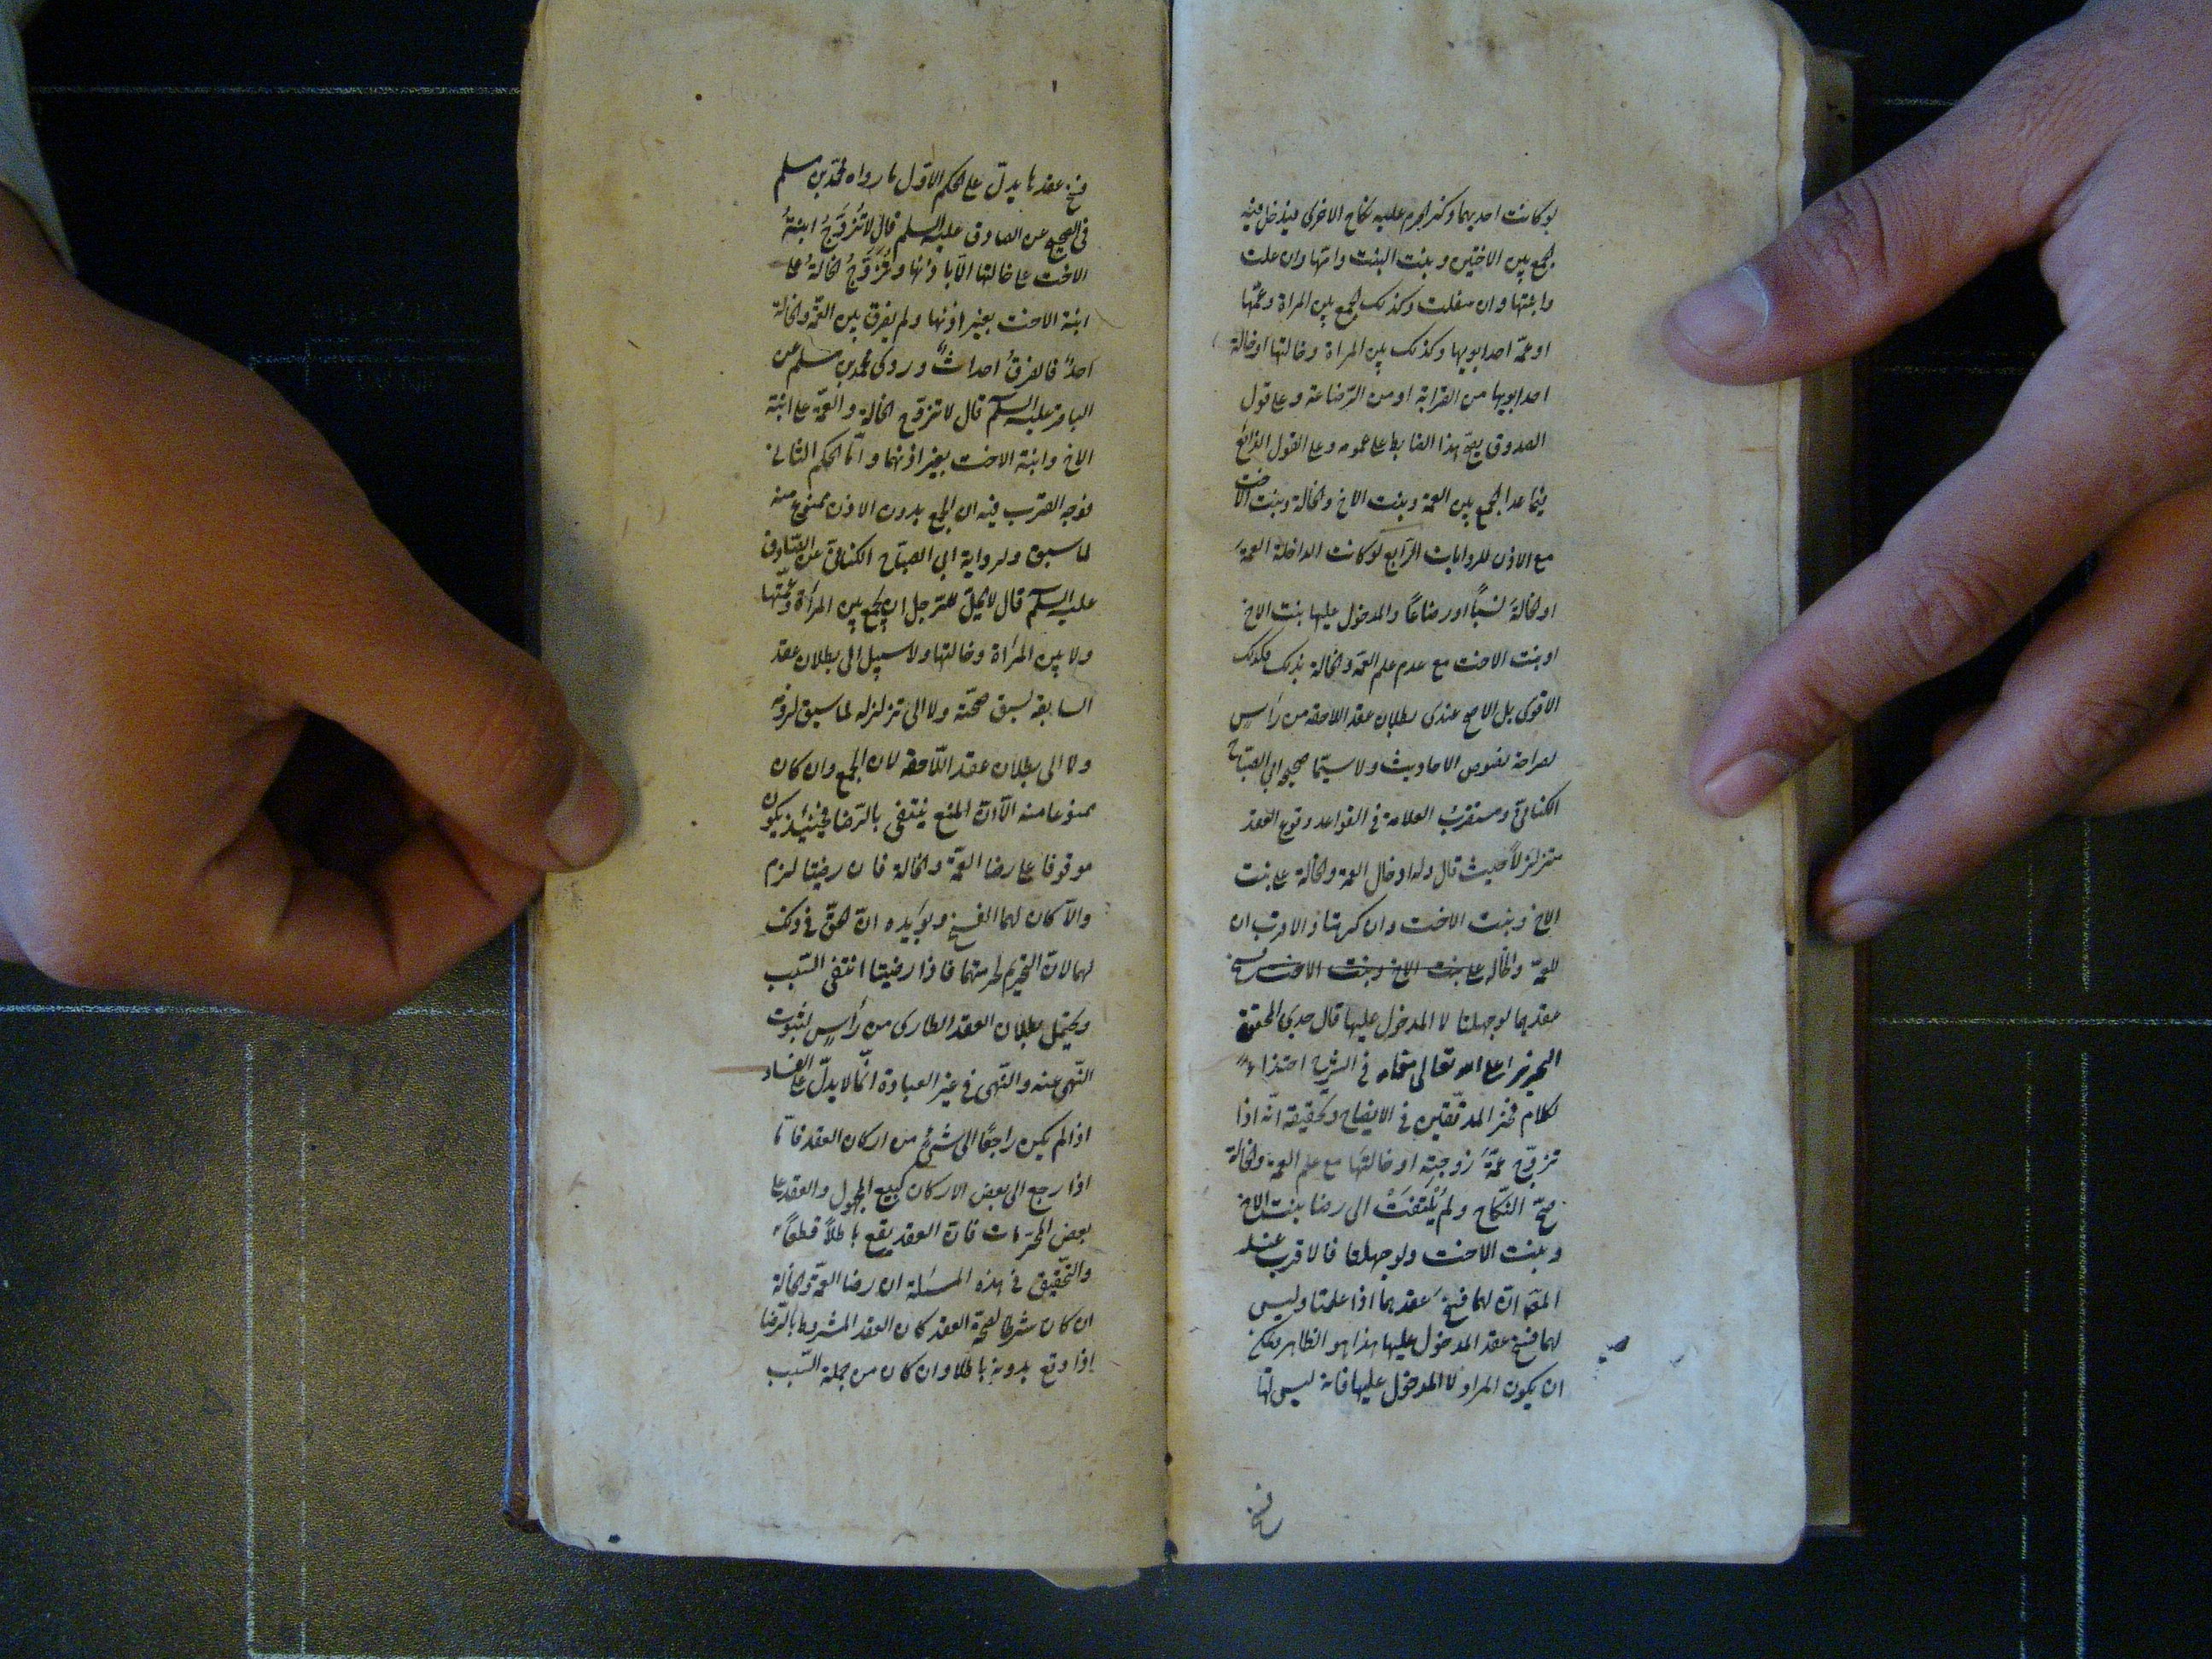 لو كانت احديهما ذكرا حرم عليه نكاح الاخرى فيدخل فيه
الجمع بين الاختين و بنت البنت وامها وان علت
وابنتها وان سفلت وكذلك الجمع بين المراة وعمتها
او عمة احد ابويها وكذلك بين المراة وخالتها او خالة
احد ابويها من القرابة او من الرضاعة وعلى قول
الصدوق يصح هذا الضابط على عمومه وعلى القول الرائع
فيما عدا الجمع بين العمة وبنت الاخ والخالة وبنت الاخت
مع الاذن للروايات الرابع لو كانت الداخلة العمة
او الخالة نسبًا او رضاعًا والمدخول عليها بنت الاخ
او بنت الاخت مع عدم علم العمة والخالة بذلك فكذلك
الاقوى بل الاصح عندى بطلان عقد اللاحقة من رأس
لصراحة نصوص الاحاديث ولا سيّما صحيح ابي الصباح
الكنانىّ ومستقرب العلامة فى القواعد وقوع العقد
متزلزلاً حيث قال وله ادخال العمة والخالة على بنت
الاخ وبنت الاخت وان كرهتا والاقرب ان
للعمة والخاله على بنت الاخ وبنت الاخت فسخ
عقدهما لو جهلتا لا المدخول عليها قال جدى المحقق
النحرير اعلى الله تعالى مقامه فى الشرح احتذاءً
لكلام فخر المدققين فى الايضاح وتحقيقه انّه اذا
تزوّج عمّةَ زوجتِه او خالتَها مع علم العمة والخالة
صحّ النّكاح ولم يُلْتَفَتْ الى رضا بنت الاخ
وبنت الاخت ولو جهلتا فالاقرب عند
المصَ انّ لهما فسخَ عقدهما اذا علمتا وليس
لهما فسخ عقد المدخول عليها هذا هو الظاهر ويمكن
ان يكون المراد لا المدخول عليها فانه ليس لها
فسخ
فسخ عقدها يدلّ على الحكم الاول ما رواه محمّد بن مسلم
فى الصحيح عن الصادق عليه السلم قال لا تُزَوَّجُ ابنةُ
الاخت على خالتها الّا باذنها وتُزَوَّجُ الخالةُ على
ابنة الاخت بغير اذنها ولم يفرق بين العمّة والخالة
احدٌ فالفرقُ احداثٌ وروى محمد بن مسلم عن
الباقر عليه السلم قال لا تزوّج الخالة والعمة على ابنة
الاخ وابنة الاخت بغير اذنهما وامّا الحكم الثانى
فوجه القرب فيه ان الجمع بدون الاذن ممنوع منه
لما سبق ولرواية ابي الصباح الكنانى عن الصّادق
عليه السلم قال لا يحلّ للرجل ان يجمع بين المراة وعمّتها
ولا بين المراة وخالتها ولا سبيل الى بطلان عقد
السابقة لسبق صحّته ولا الى تزلزله لما سبق لزومه
ولا الى بطلان عقد اللّاحقه لان الجمع وان كان
ممنوعا منه الّا انّ المنع ينتفى بالرّضا فحينئذ يكون
موقوفا على رضا العمّة والخالة فان رضيتا لزم
والّا كان لهما الفسخ ويؤيده انّ الحقّ فى ذلك
لهما لانّ التحريم لحرمتهما فاذا رضيتا انتفى السّبب
ويحتمل بطلان العقد الطارى من رأسٍ لثبوت
النّهى عنه والنّهى فى غير العبادة انّما لا يدلّ على الفساد
اذا لم يكن راجعًا الى شئٍ من اركان العقد فامّا
اذا رجع الى بعض الاركان كبيع المجهول والعقد على
بعض المحرّمات فانّ العقد يقع باطلاً قطعًا
والتّحقيق فى هذه المسئلة ان رضا العمّة والخالة
ان كان شرطا لصحّة العقد كان العقد المشروط بالرّضا
اذا وقع بدونه باطلا وان كان من جملة السّبب